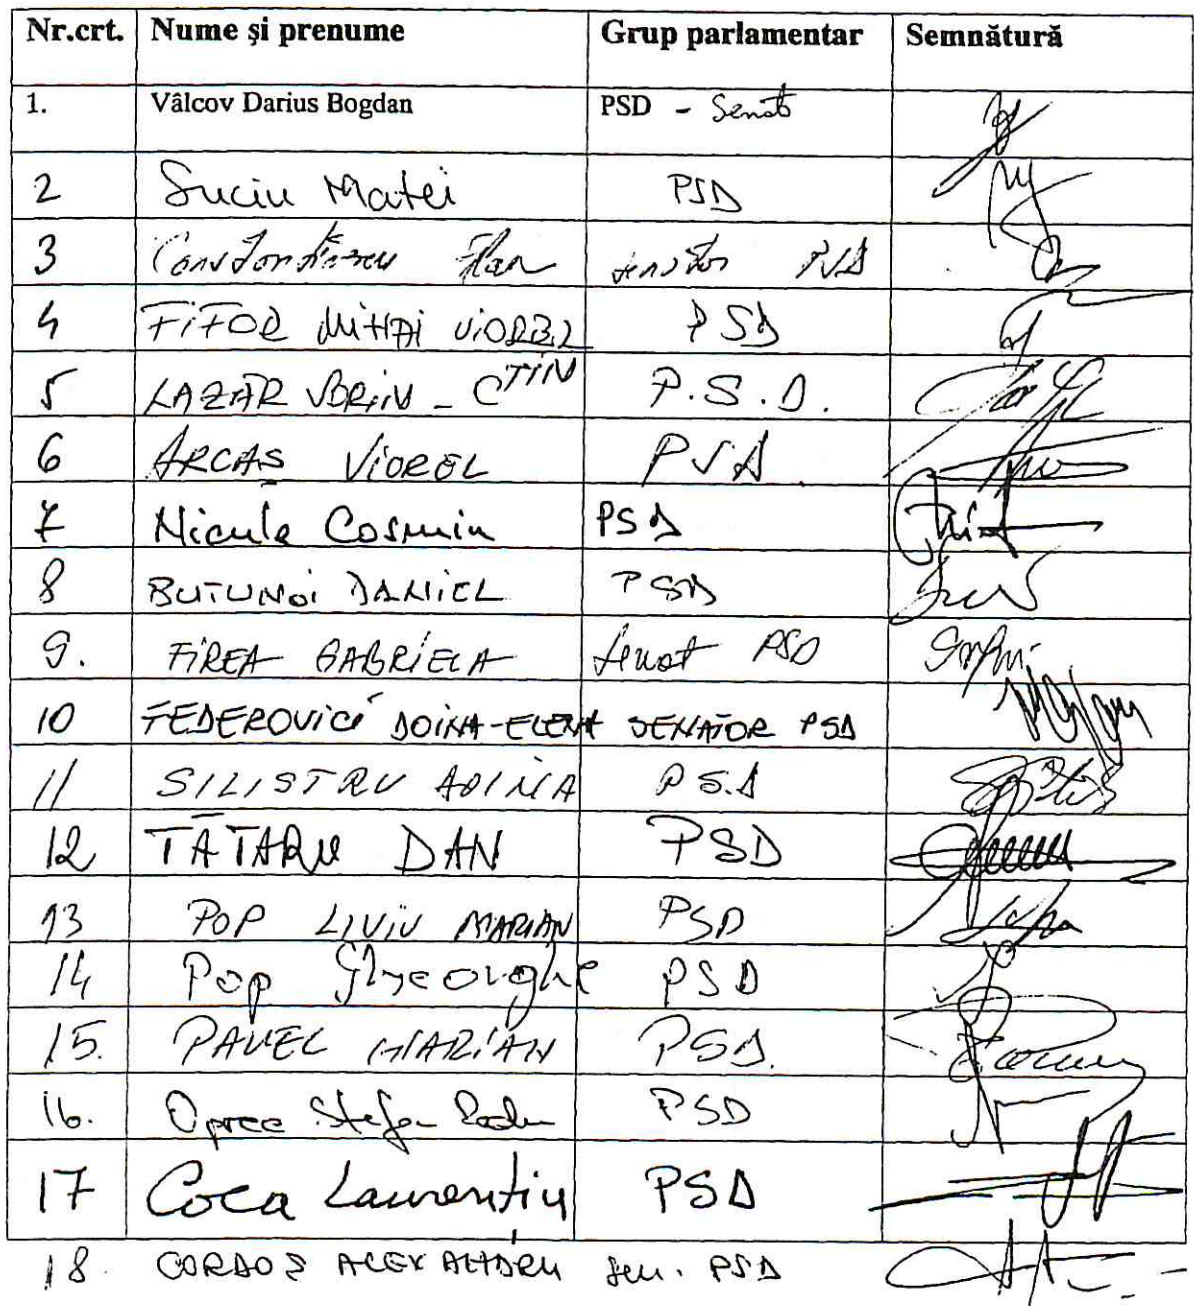 Nr.crt. Nume și prenume Grup parlamentar Semnătură
1. Vâlcov Darius Bogdan PSD - Senat
2 Suciu Matei PSD
3 Constantinescu Florin senator PSD
4 FIFOR MIHAI VIOREL PSD
5 LAZĂR SORIN - CTIN P.S.D.
6 ARCAȘ VIOREL PSD
7 Nicula Cosmin PSD
8 BUTUNOI DANIEL PSD
9. FIREA GABRIELA Senat PSD
10 FEDEROVICI DOINA-ELENA SENATOR PSD
11 SILISTRU ADINA PSD
12 TĂTARU DAN PSD
13 POP LIVIU MARIAN PSD
14 Pop Gheorghe PSD
15. PAVEL MARIAN PSD.
16. Oprea Stefan Radu PSD
17 Coca Laurențiu PSD
18. CORDOȘ ALEXANDRU sen. PSD